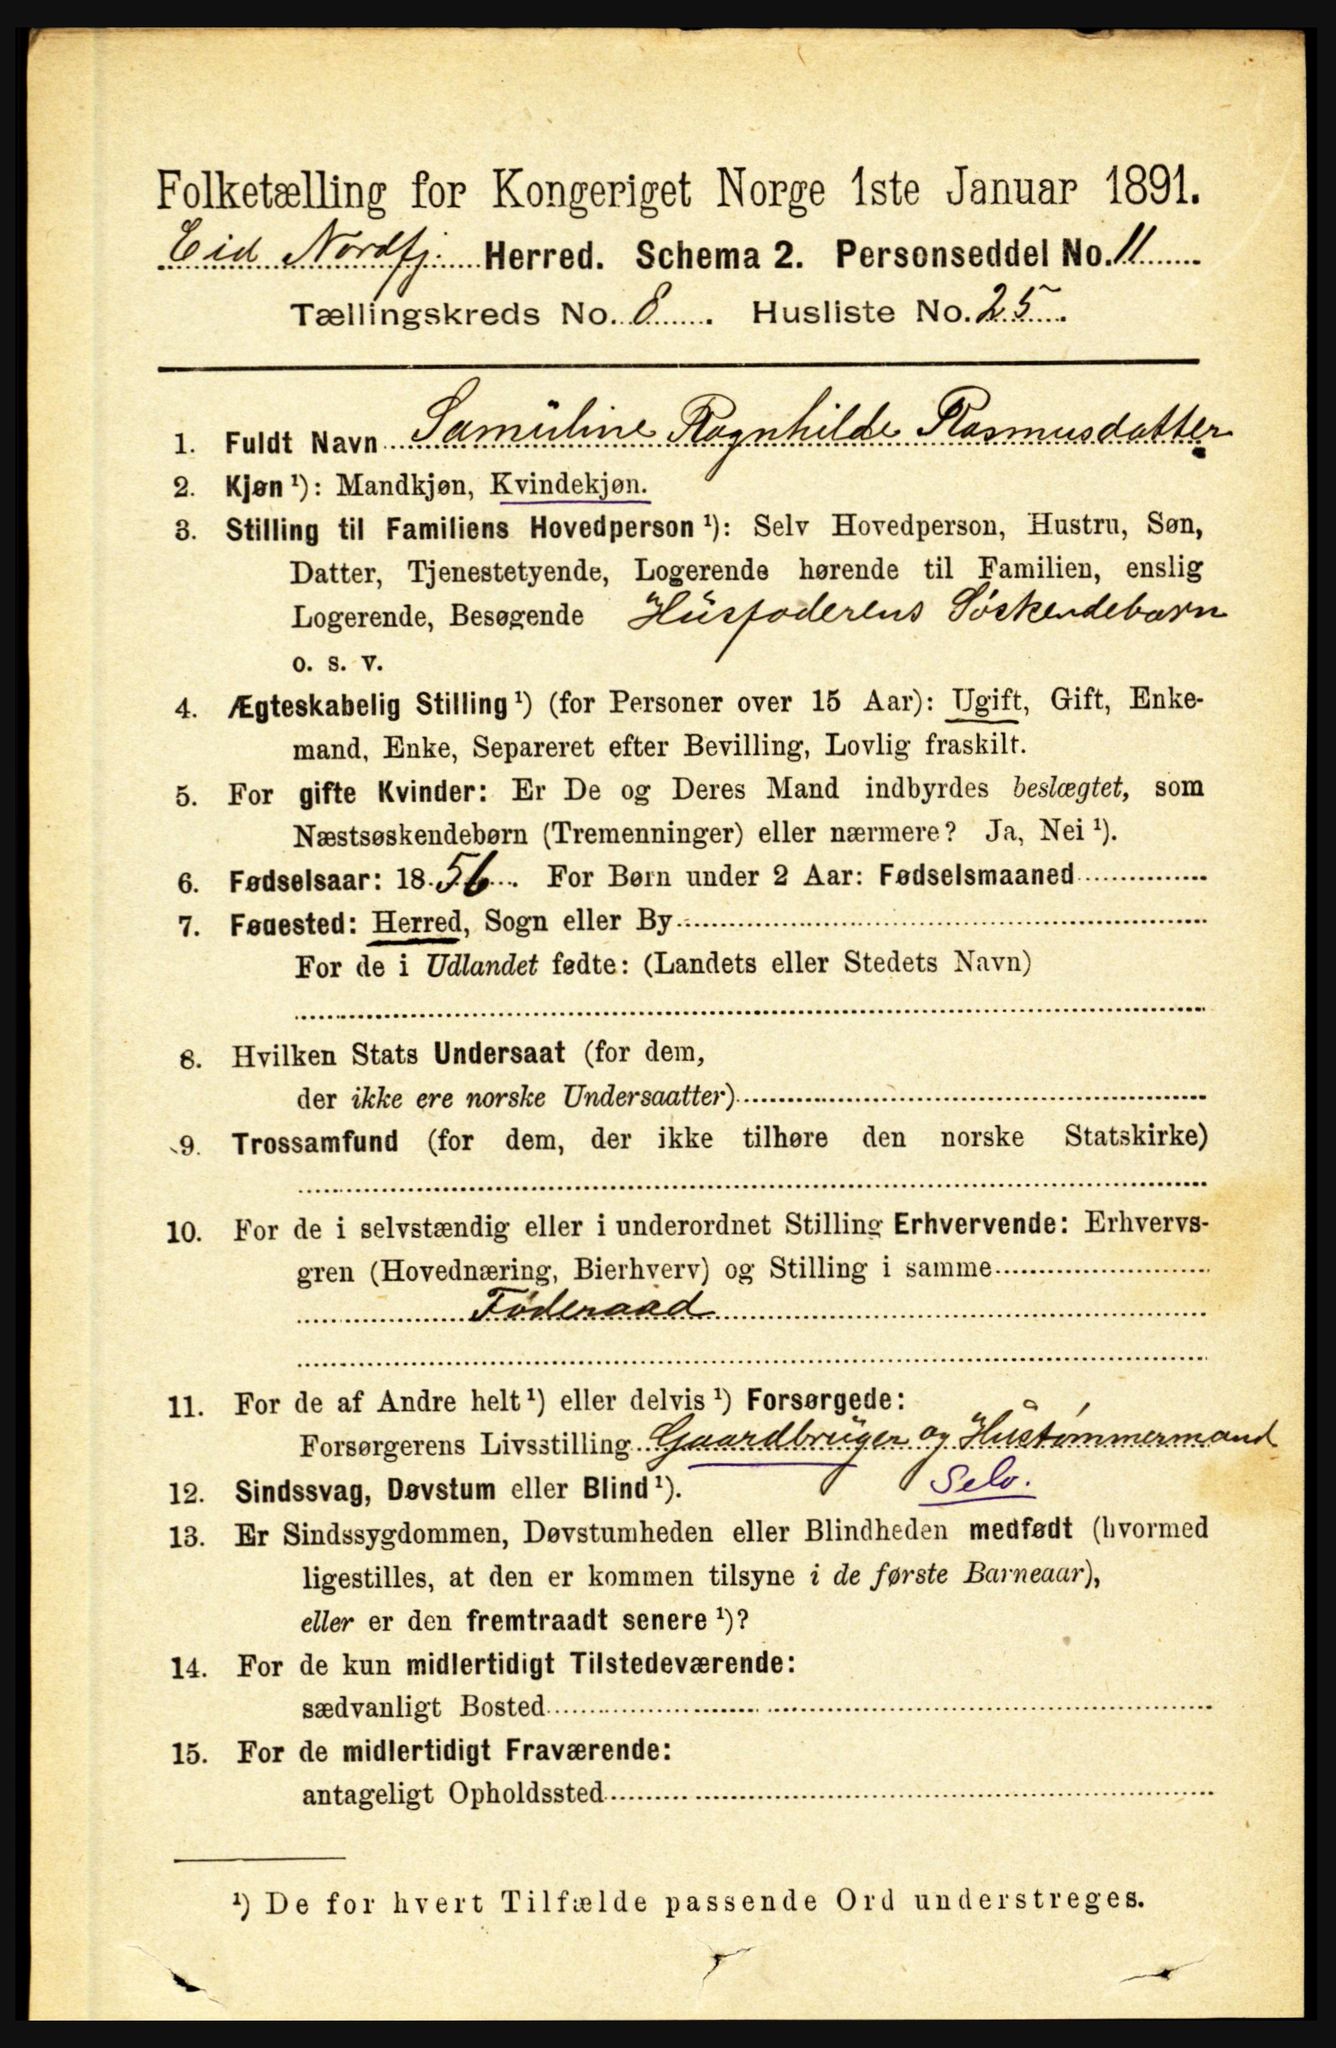 Folketælling for Kongeriget Norge 1ste Januar 1891.
Eid Nordfj. Herred. Schema 2. Personseddel No. 11
Tællingskreds No. 8. Husliste No. 25.
1. Fuldt Navn Samuline Ragnhilde Rasmusdatter
2. Kjøn ¹): Mandkjøn, Kvindekjøn.
3. Stilling til Familiens Hovedperson ¹): Selv Hovedperson, Hustru, Søn,
Datter, Tjenestetyende, Logerende hørende til Familien, enslig
Logerende, Besøgende Husfaderens Søskendebarn
o. s. v.
4. Ægteskabelig Stilling ¹) (for Personer over 15 Aar): Ugift, Gift, Enke-
mand, Enke, Separeret efter Bevilling, Lovlig fraskilt.
5. For gifte Kvinder: Er De og Deres Mand indbyrdes beslægtet, som
Næstsøskendebørn (Tremenninger) eller nærmere? Ja, Nei ¹).
6. Fødselsaar: 1856. For Børn under 2 Aar: Fødselsmaaned
7. Fødested: Herred, Sogn eller By
For de i Udlandet fødte: (Landets eller Stedets Navn)
8. Hvilken Stats Undersaat (for dem,
der ikke ere norske Undersaatter)
9. Trossamfund (for dem, der ikke tilhøre den norske Statskirke)
10. For de i selvstændig eller i underordnet Stilling Erhvervende: Erhvervs-
gren (Hovednæring, Bierhverv) og Stilling i samme
Føderaad
11. For de af Andre helt ¹) eller delvis ¹) Forsørgede:
Forsørgerens Livsstilling Gaardbruger og Hustømmermand
Selv.
12. Sindssvag, Døvstum eller Blind ¹).
13. Er Sindssygdommen, Døvstumheden eller Blindheden medfødt (hvormed
ligestilles, at den er kommen tilsyne i de første Barneaar),
eller er den fremtraadt senere ¹)?
14. For de kun midlertidigt Tilstedeværende:
sædvanligt Bosted
15. For de midlertidigt Fraværende:
antageligt Opholdssted
¹) De for hvert Tilfælde passende Ord understreges.